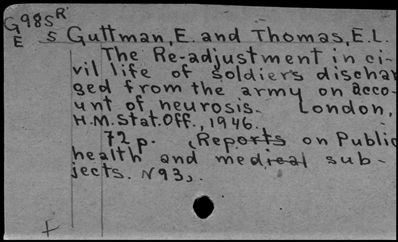 G985R
E 5 Guttman, E. and Thomas, E.L.
The Re-adjustment in ci-
vil life of soldiers dischar
ged from the army on acco-
unt of neurosis. London,
H.M. Stat. Off., 1946.
72 p. (Reports on Public
health and medical sub-
jects. N93).